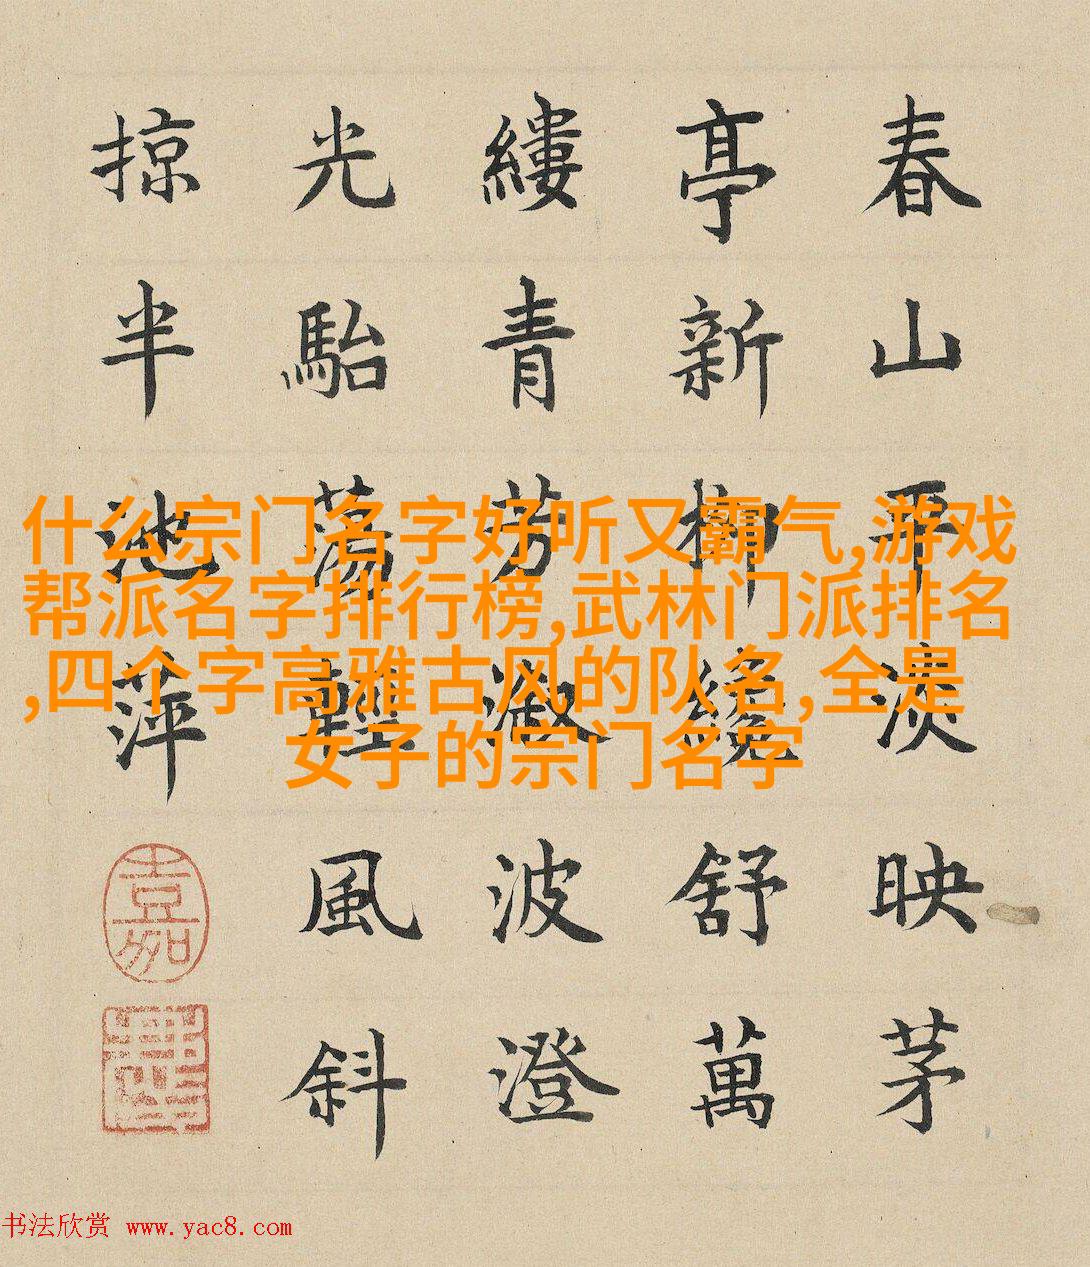 春山平淡映茅
亭新柳纔舒萬
縷青芳溆波澄
光駘蕩輕風斜
掠半池萍
嘉
什么宗门名字好听又霸气,游戏
帮派名字排行榜,武林门派排名
,四个字高雅古风的队名,全是
女子的宗门名字
书法欣赏 www.yac8.com